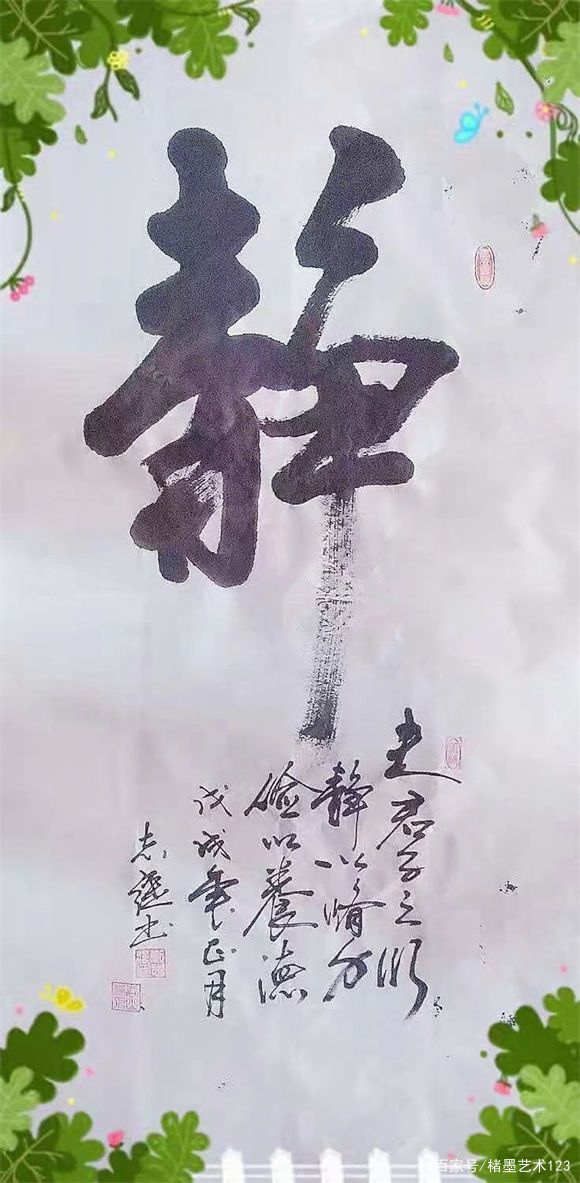 静
夫君子之行
静以脩身
俭以養德
戊戌年正月
志 书
百家号/楮墨艺术123